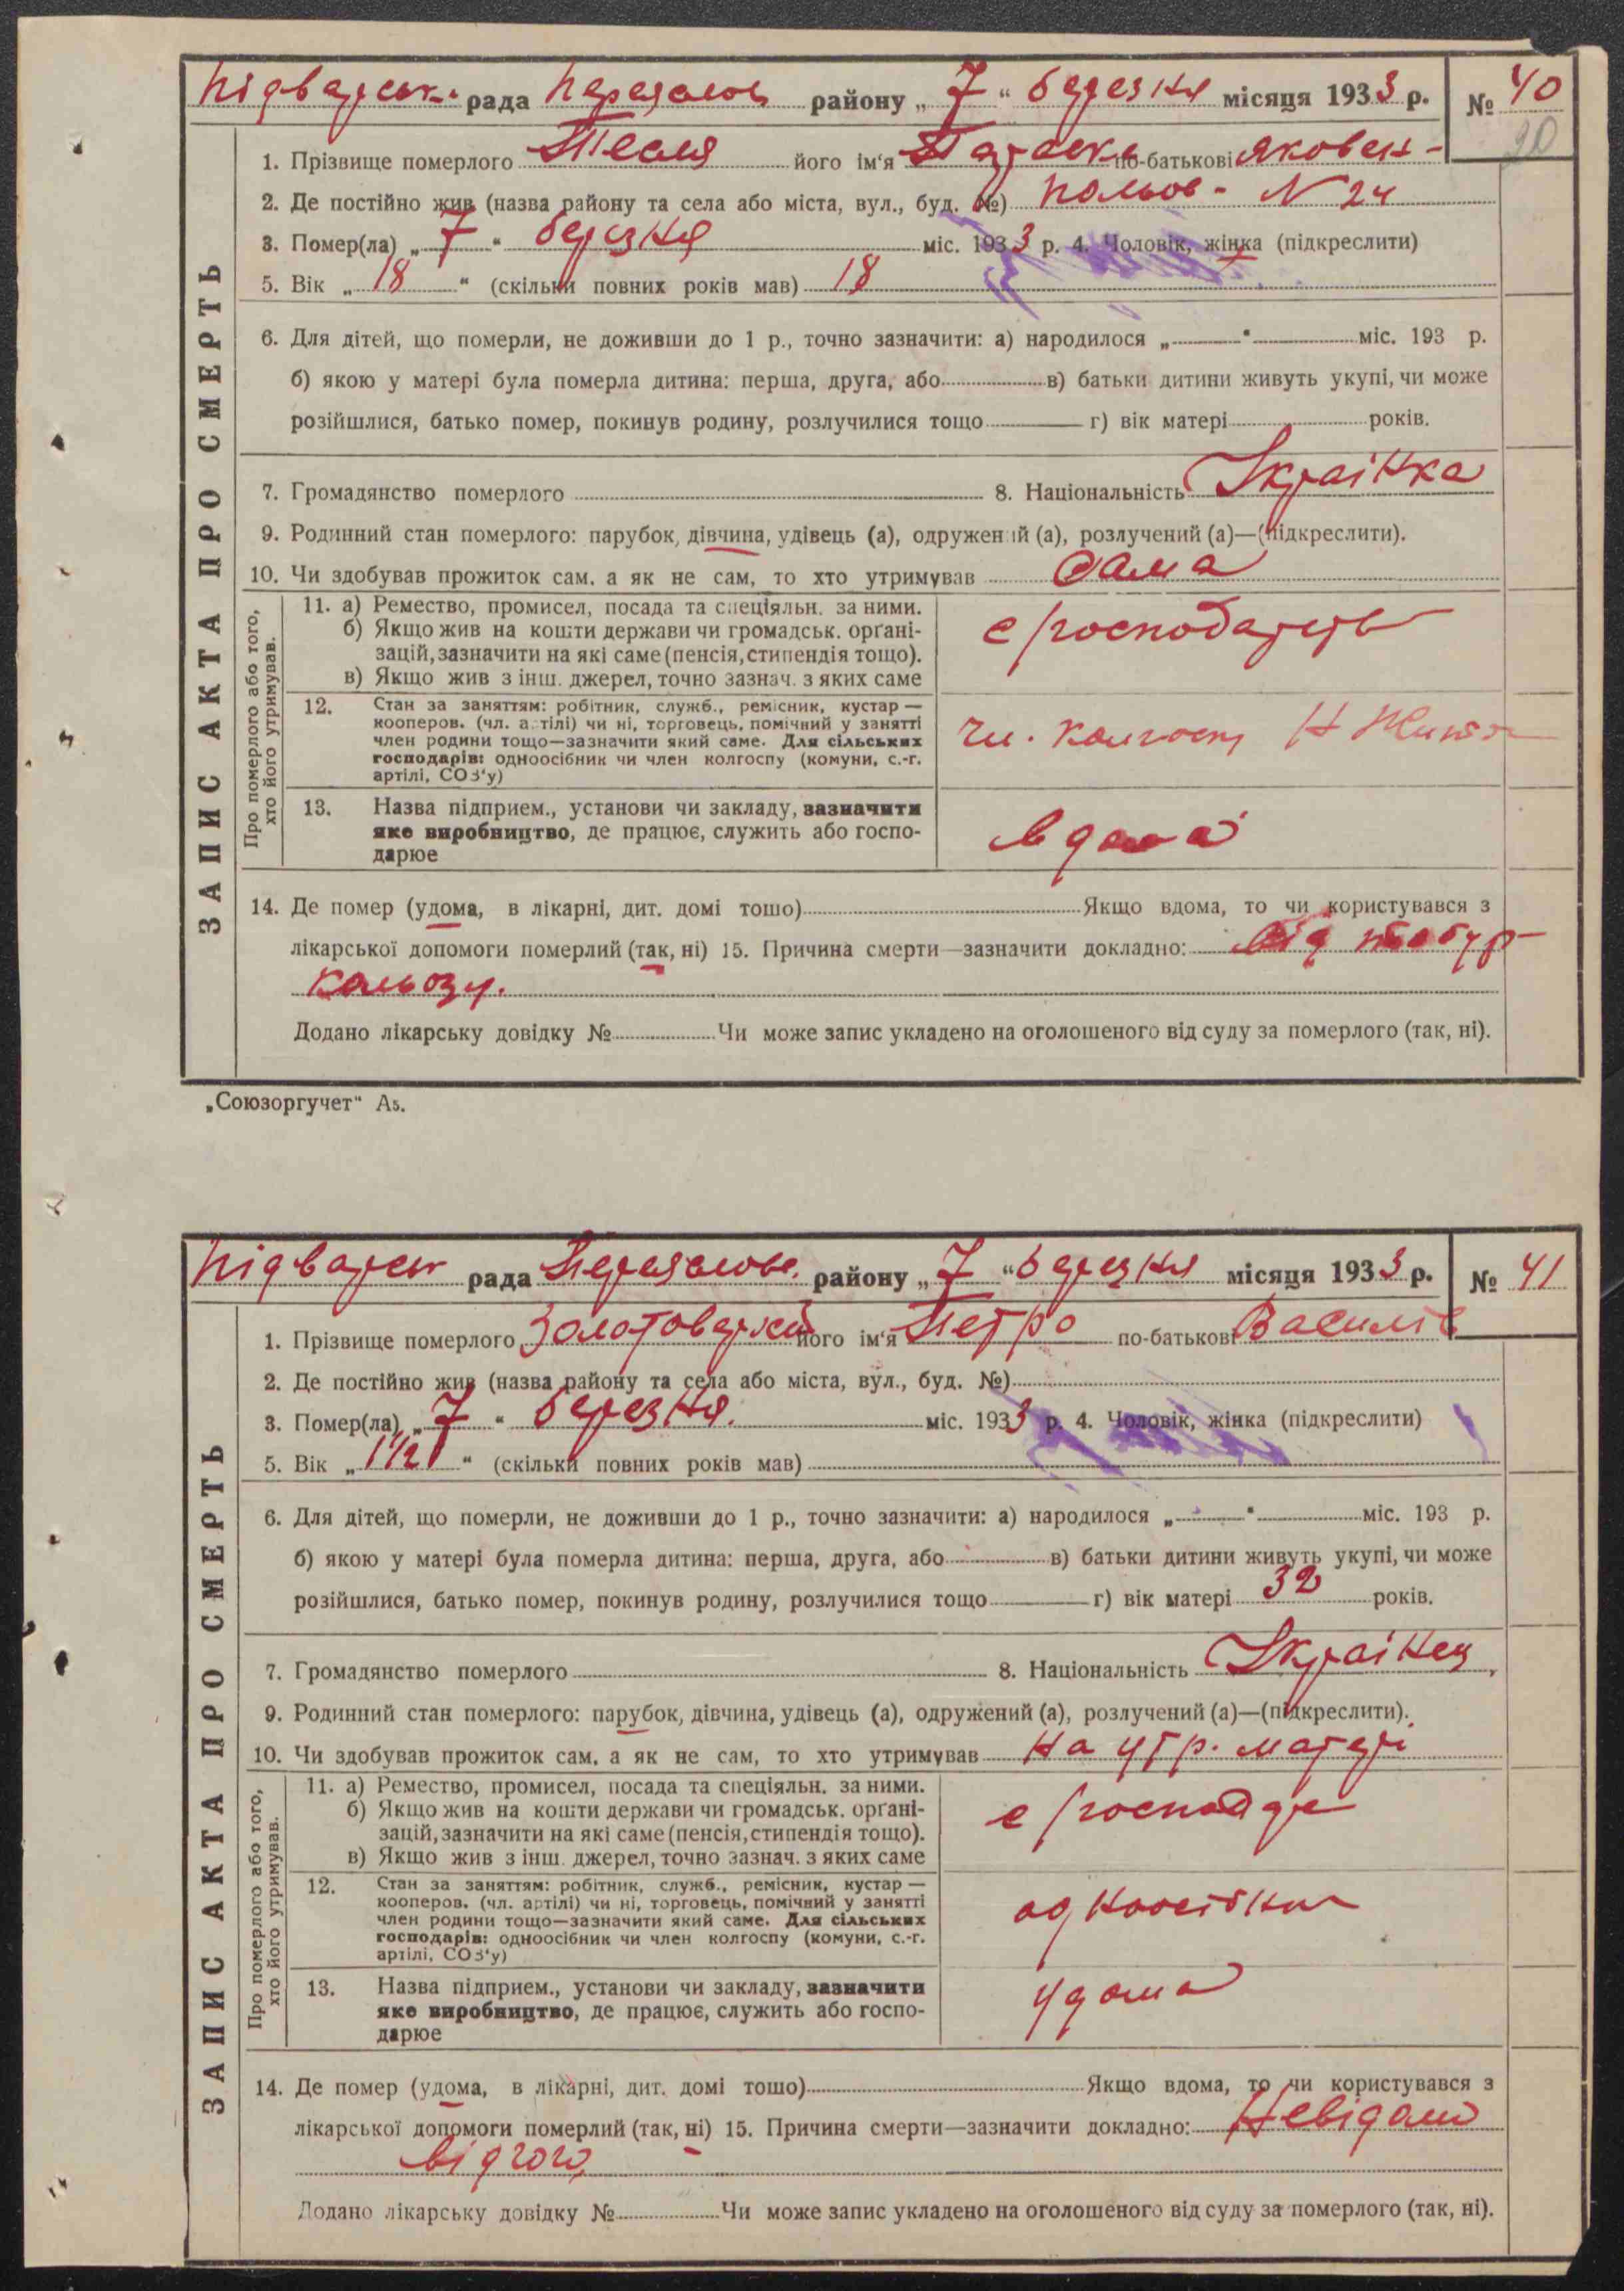 Підварськ. рада Переяслов району „7“ березня місяця 1933 р. № 40
20
1. Прізвище померлого Тесля його ім'я Параска по-батькові Яковен-
2. Де постійно жив (назва району та села або міста, вул., буд. №) Польов- N 24
3. Помер(ла) „7“ березня міс. 1933 р. 4. Чоловік, жінка (підкреслити)
5. Вік „18“ (скільки повних років мав) 18
6. Для дітей, що померли, не доживши до 1 р., точно зазначити: а) народилося „ “ міс. 193 р.
б) якою у матері була померла дитина: перша, друга, або в) батьки дитини живуть укупі, чи може
розійшлися, батько помер, покинув родину, розлучилися тощо г) вік матері років.
7. Громадянство померлого 8. Національність Українка
9. Родинний стан померлого: парубок, дівчина, удівець (а), одружений (а), розлучений (а)—(підкреслити).
10. Чи здобував прожиток сам, а як не сам, то хто утримував Сама
ЗАПИС АКТА ПРО СМЕРТЬ
Про померлого або того, хто його утримував.
11. а) Ремество, промисел, посада та спеціяльн. за ними.
б) Якщо жив на кошти держави чи громадськ. орґані-
зацій, зазначити на які саме (пенсія, стипендія тощо).
в) Якщо жив з інш. джерел, точно зазнач. з яких саме
с/господарств
12. Стан за заняттям: робітник, служб., ремісник, кустар —
кооперов. (чл. артілі) чи ні, торговець, помічний у занятті
член родини тощо—зазначити який саме. Для сільських
господарів: одноосібник чи член колгоспу (комуни, с.-г.
артілі, СОЗ'у)
чл. колгоспу Н Життя
13. Назва підприєм., установи чи закладу, зазначити
яке виробництво, де працює, служить або госпо-
дарює
вдома
14. Де помер (удома, в лікарні, дит. домі тошо) Якщо вдома, то чи користувався з
лікарської допомоги померлий (так, ні) 15. Причина смерти—зазначити докладно: Від тубур-
кольозу.
Додано лікарську довідку № Чи може запис укладено на оголошеного від суду за померлого (так, ні).
„Союзоргучет“ А5.
Підварськ рада Переяслове. району „7“ березня місяця 1933 р. № 41
1. Прізвище померлого Золотоверхий його ім'я Петро по-батькові Василів
2. Де постійно жив (назва району та села або міста, вул., буд. №)
3. Помер(ла) „7“ березня. міс. 1933 р. 4. Чоловік, жінка (підкреслити)
5. Вік „1 1/2“ (скільки повних років мав)
6. Для дітей, що померли, не доживши до 1 р., точно зазначити: а) народилося „ “ міс. 193 р.
б) якою у матері була померла дитина: перша, друга, або в) батьки дитини живуть укупі, чи може
розійшлися, батько помер, покинув родину, розлучилися тощо г) вік матері 32 років.
7. Громадянство померлого 8. Національність Українец,
9. Родинний стан померлого: парубок, дівчина, удівець (а), одружений (а), розлучений (а)—(підкреслити).
10. Чи здобував прожиток сам, а як не сам, то хто утримував На утр. матері
ЗАПИС АКТА ПРО СМЕРТЬ
Про померлого або того, хто його утримував.
11. а) Ремество, промисел, посада та спеціяльн. за ними.
б) Якщо жив на кошти держави чи громадськ. орґані-
зацій, зазначити на які саме (пенсія, стипендія тощо).
в) Якщо жив з інш. джерел, точно зазнач. з яких саме
12. Стан за заняттям: робітник, служб., ремісник, кустар —
кооперов. (чл. артілі) чи ні, торговець, помічний у занятті
член родини тощо—зазначити який саме. Для сільських
господарів: одноосібник чи член колгоспу (комуни, с.-г.
артілі, СОЗ'у)
одноосібник
13. Назва підприєм., установи чи закладу, зазначити
яке виробництво, де працює, служить або госпо-
дарює
удома
14. Де помер (удома, в лікарні, дит. домі тошо) Якщо вдома, то чи користувався з
лікарської допомоги померлий (так, ні) 15. Причина смерти—зазначити докладно: Невідомо
від чого
Додано лікарську довідку № Чи може запис укладено на оголошеного від суду за померлого (так, ні).